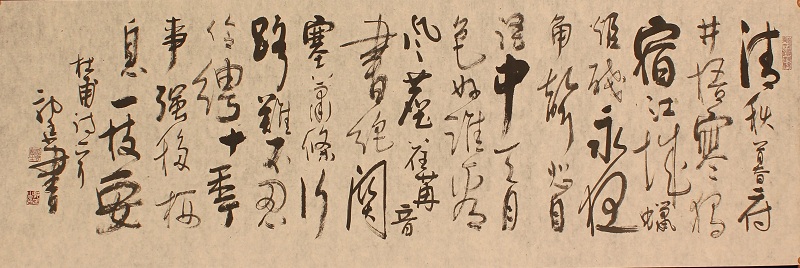 清秋暮府
井梧寒獨
宿江城蠟
炬殘永夜
角聲悲自
語中天月
色好誰看
風塵荏苒音
書絶関
塞蕭條行
路難已忍
伶俜十年
事強移栖
息一枝安
杜甫诗一首
書